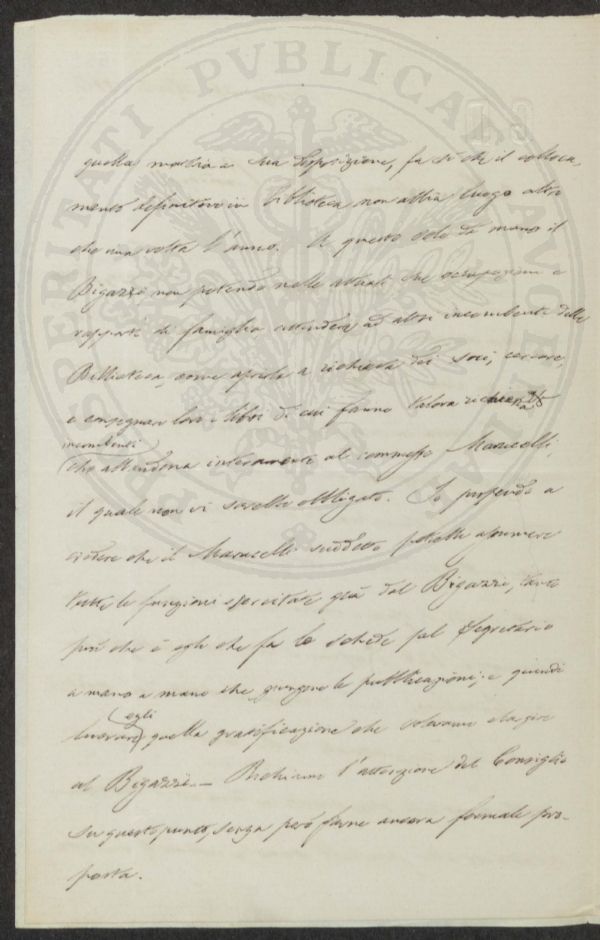 quella messa a sua disposizione, fa sì che il colloca
mento definitivo in Biblioteca non abbia luogo altro
che una volta l'anno. A questo solo dà mano il
Bigazzi non potendo nelle attuali sue occupazioni e
rapporti di famiglia attendere ad altri incombenti della
Biblioteca, come aprirla a richiesta dei Soci, cercare,
e consegnar loro i libri di cui fanno talora richiesta
incombenti
che attendono interamente al commesso Marucelli,
il quale non vi sarebbe obbligato. Io propendo a
credere che il Marucelli suddetto potrebbe assumere
tutte le funzioni esercitate già dal Bigazzi, tanto
più che è egli che fa le schede pel Segretario
a mano a mano che giungono le pubblicazioni; e quindi
egli
quella gratificazione che solevamo elargire
al Bigazzi. — Richiamo l'attenzione del Consiglio
su questo punto, senza però farne ancora formale pro-
posta.
PROSPERITATI PVBLICAE AVGENDAE